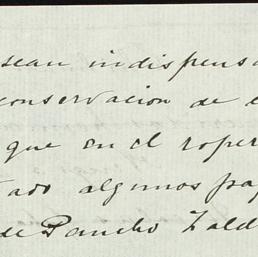 sean indispensa
conservacion de e
que en el roper
tado algunos pap
de Pancho Zald